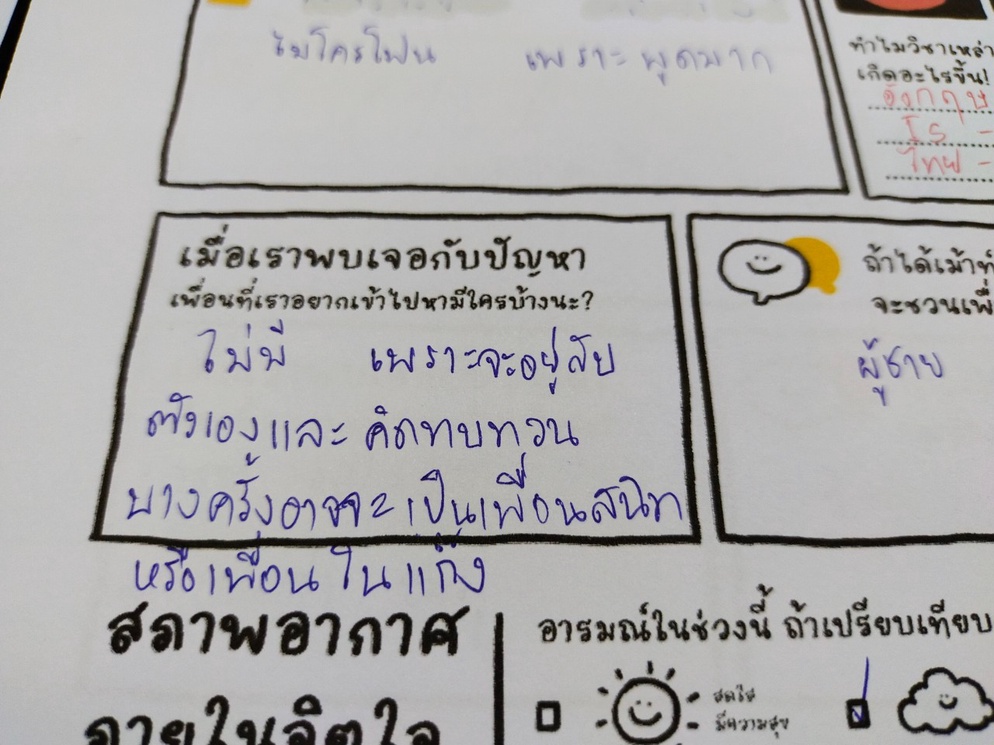 ไมโครโฟน เพราะพูดมาก
ทำไมวิชาเหล่า
เกิดอะไรขึ้น!
อังกฤษ
IS -
ไทย -
เมื่อเราพบเจอกับปัญหา
เพื่อนที่เราอยากเข้าไปหามีใครบ้างนะ?
ไม่มี เพราะจะอยู่กับ
ตัวเองและ คิดทบทวน
บางครั้งอาจจะเป็นเพื่อนสนิท
หรือเพื่อนในแก๊ง
ถ้าได้เม้าท์
จะชวนเพื่
ผู้ชาย
สภาพอากาศ
ภายในจิตใจ
อารมณ์ในช่วงนี้ ถ้าเปรียบเทียบ
สดใส
มีความสุข